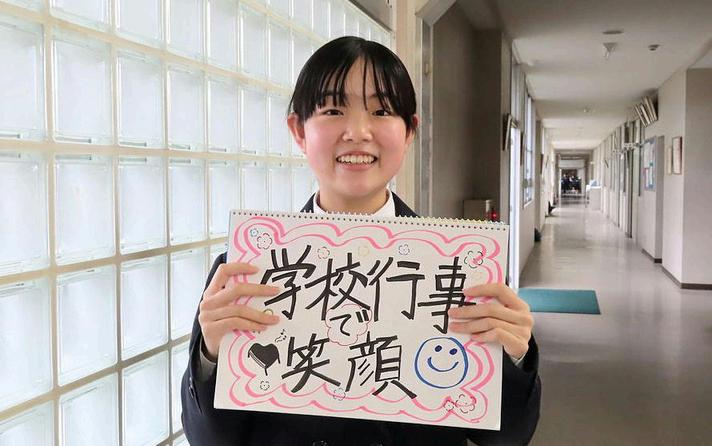 学校行事
で
笑顔